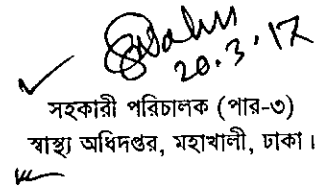 20.3.17
সহকারী পরিচালক (পার-৩)
স্বাস্থ্য অধিদপ্তর, মহাখালী, ঢাকা।